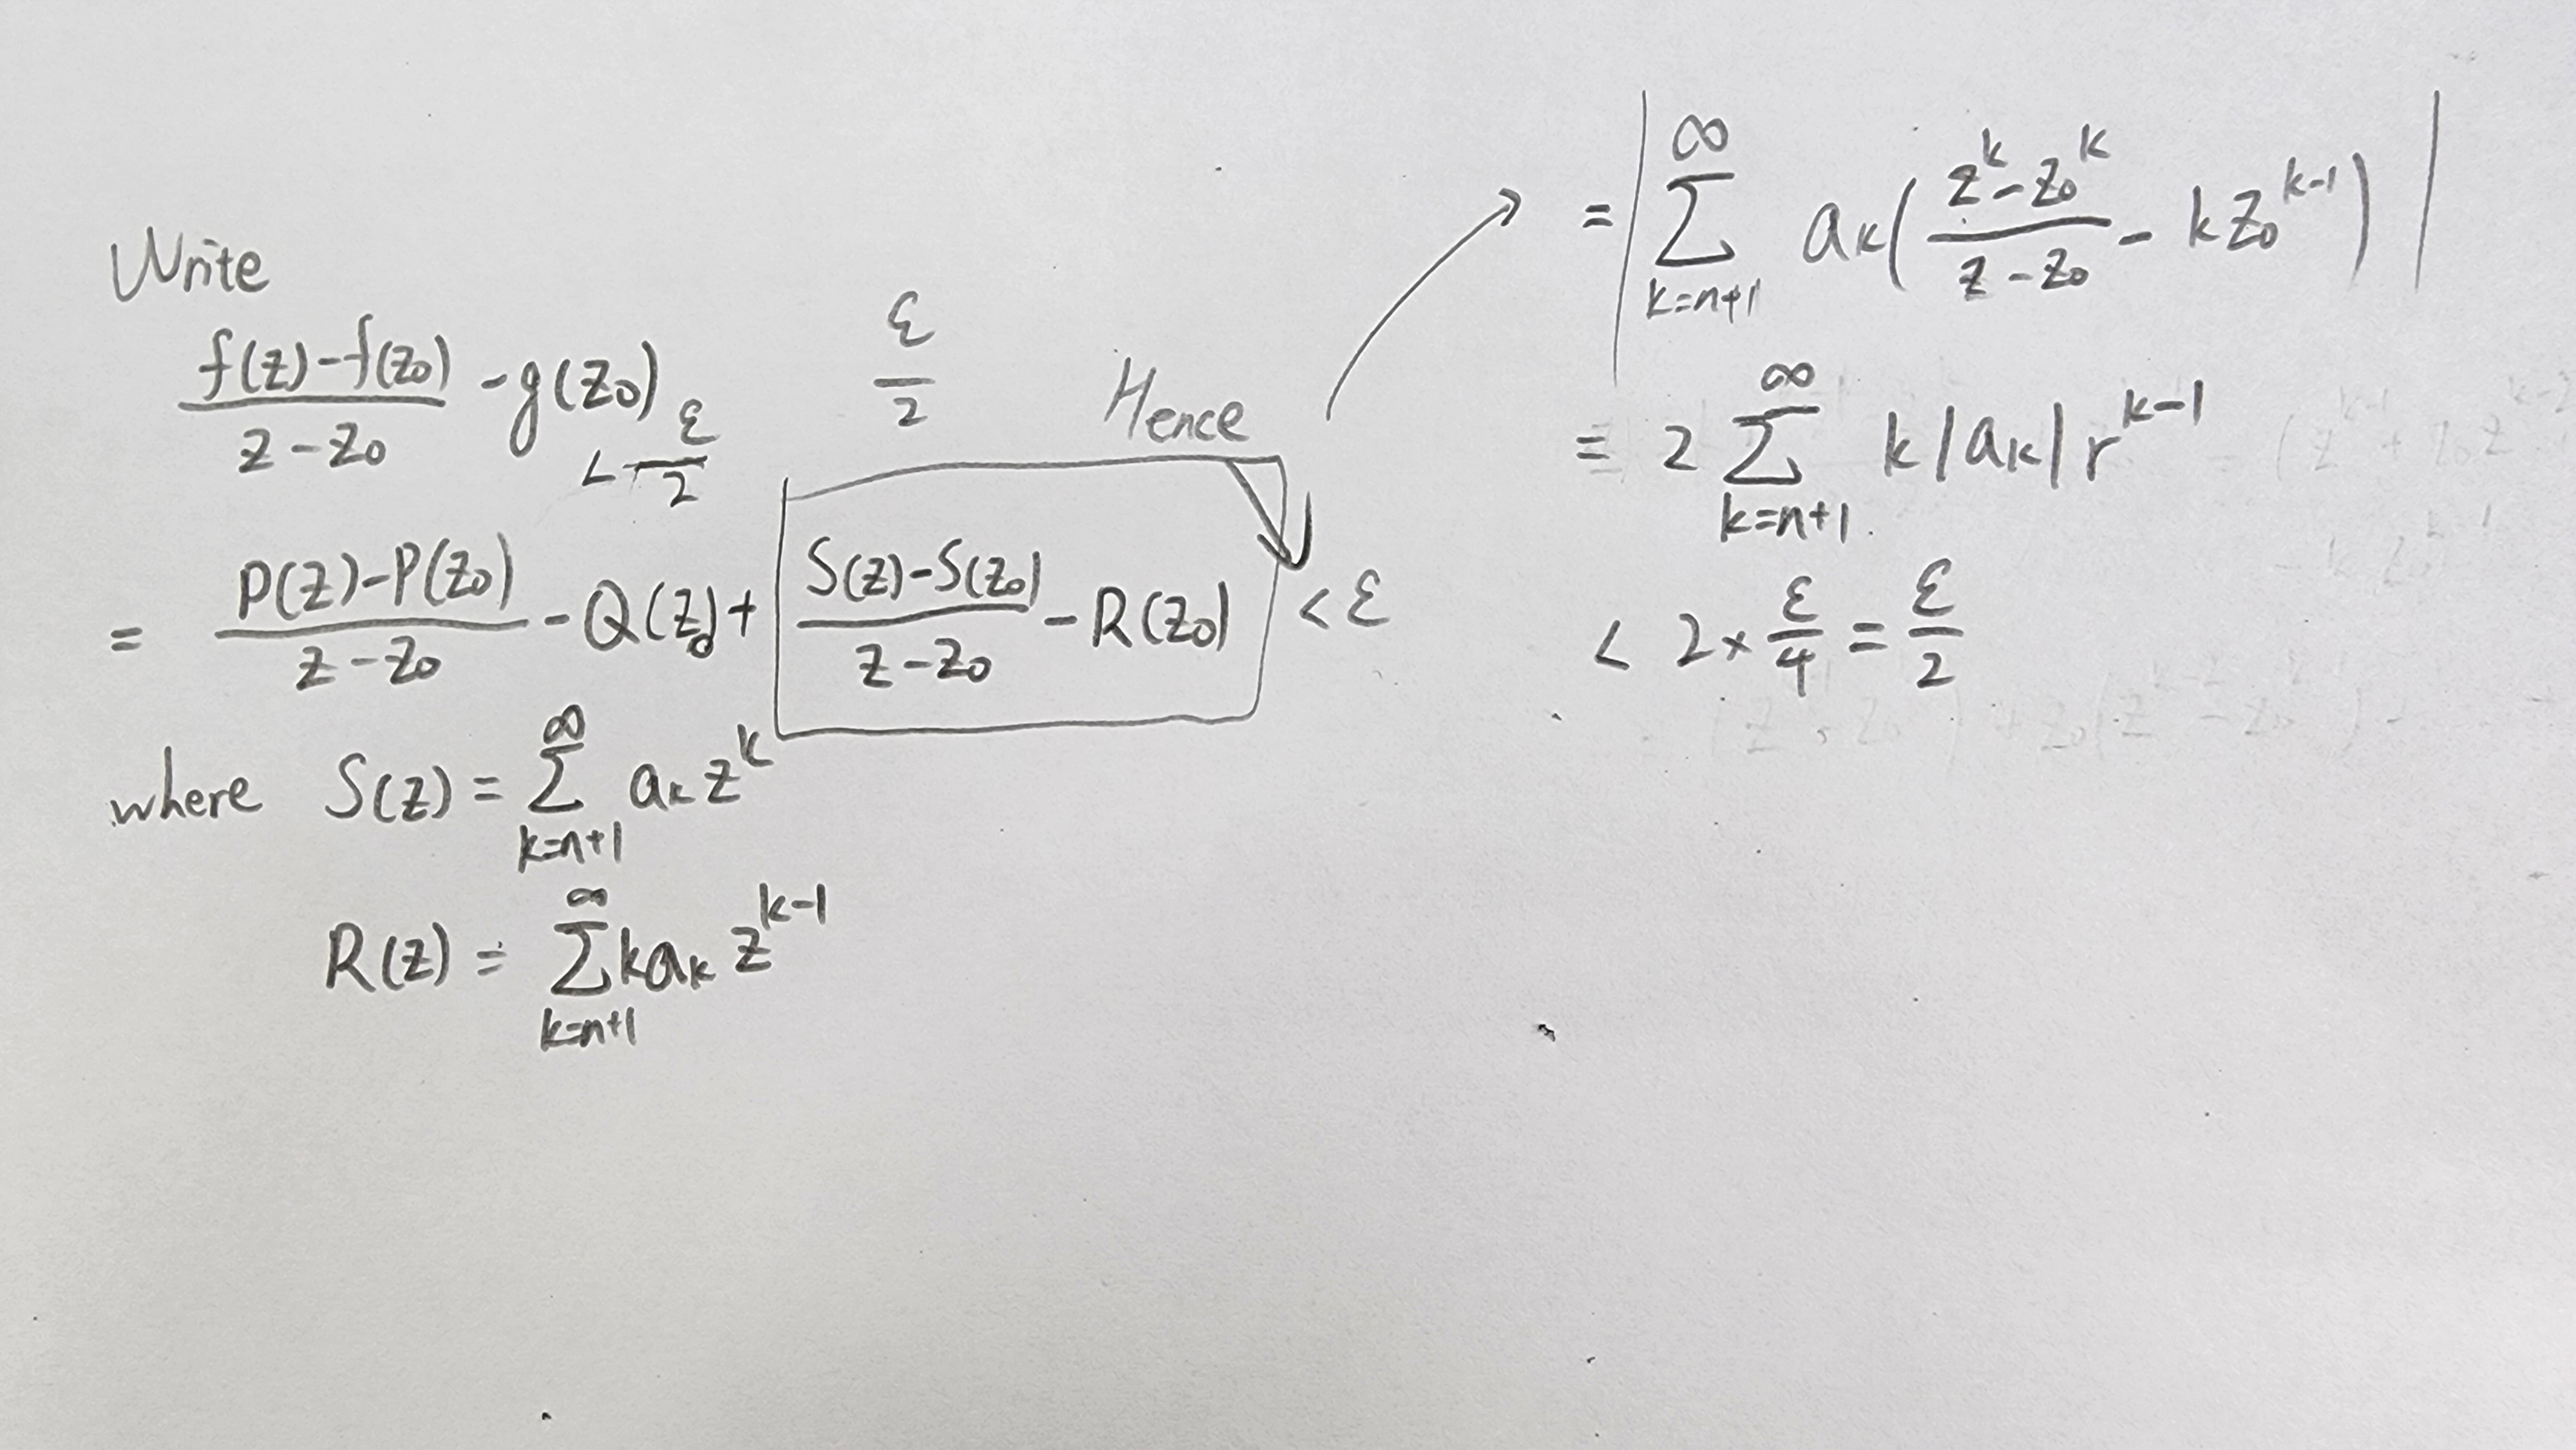 Write
(f(z)-f(z₀))/(z-z₀) - g(z₀)
< ε/2
ε/2
Hence
= (P(z)-P(z₀))/(z-z₀) - Q(z₀) + (S(z)-S(z₀))/(z-z₀) - R(z₀) < ε
where S(z) = ∑_{k=n+1}^{∞} aₖ z^k
R(z) = ∑_{k=n+1}^{∞} kaₖ z^{k-1}
= | ∑_{k=n+1}^{∞} aₖ( (z^k-z₀^k)/(z-z₀) - kz₀^{k-1} ) |
= 2 ∑_{k=n+1}^{∞} k|aₖ|r^{k-1}
< 2 × ε/4 = ε/2